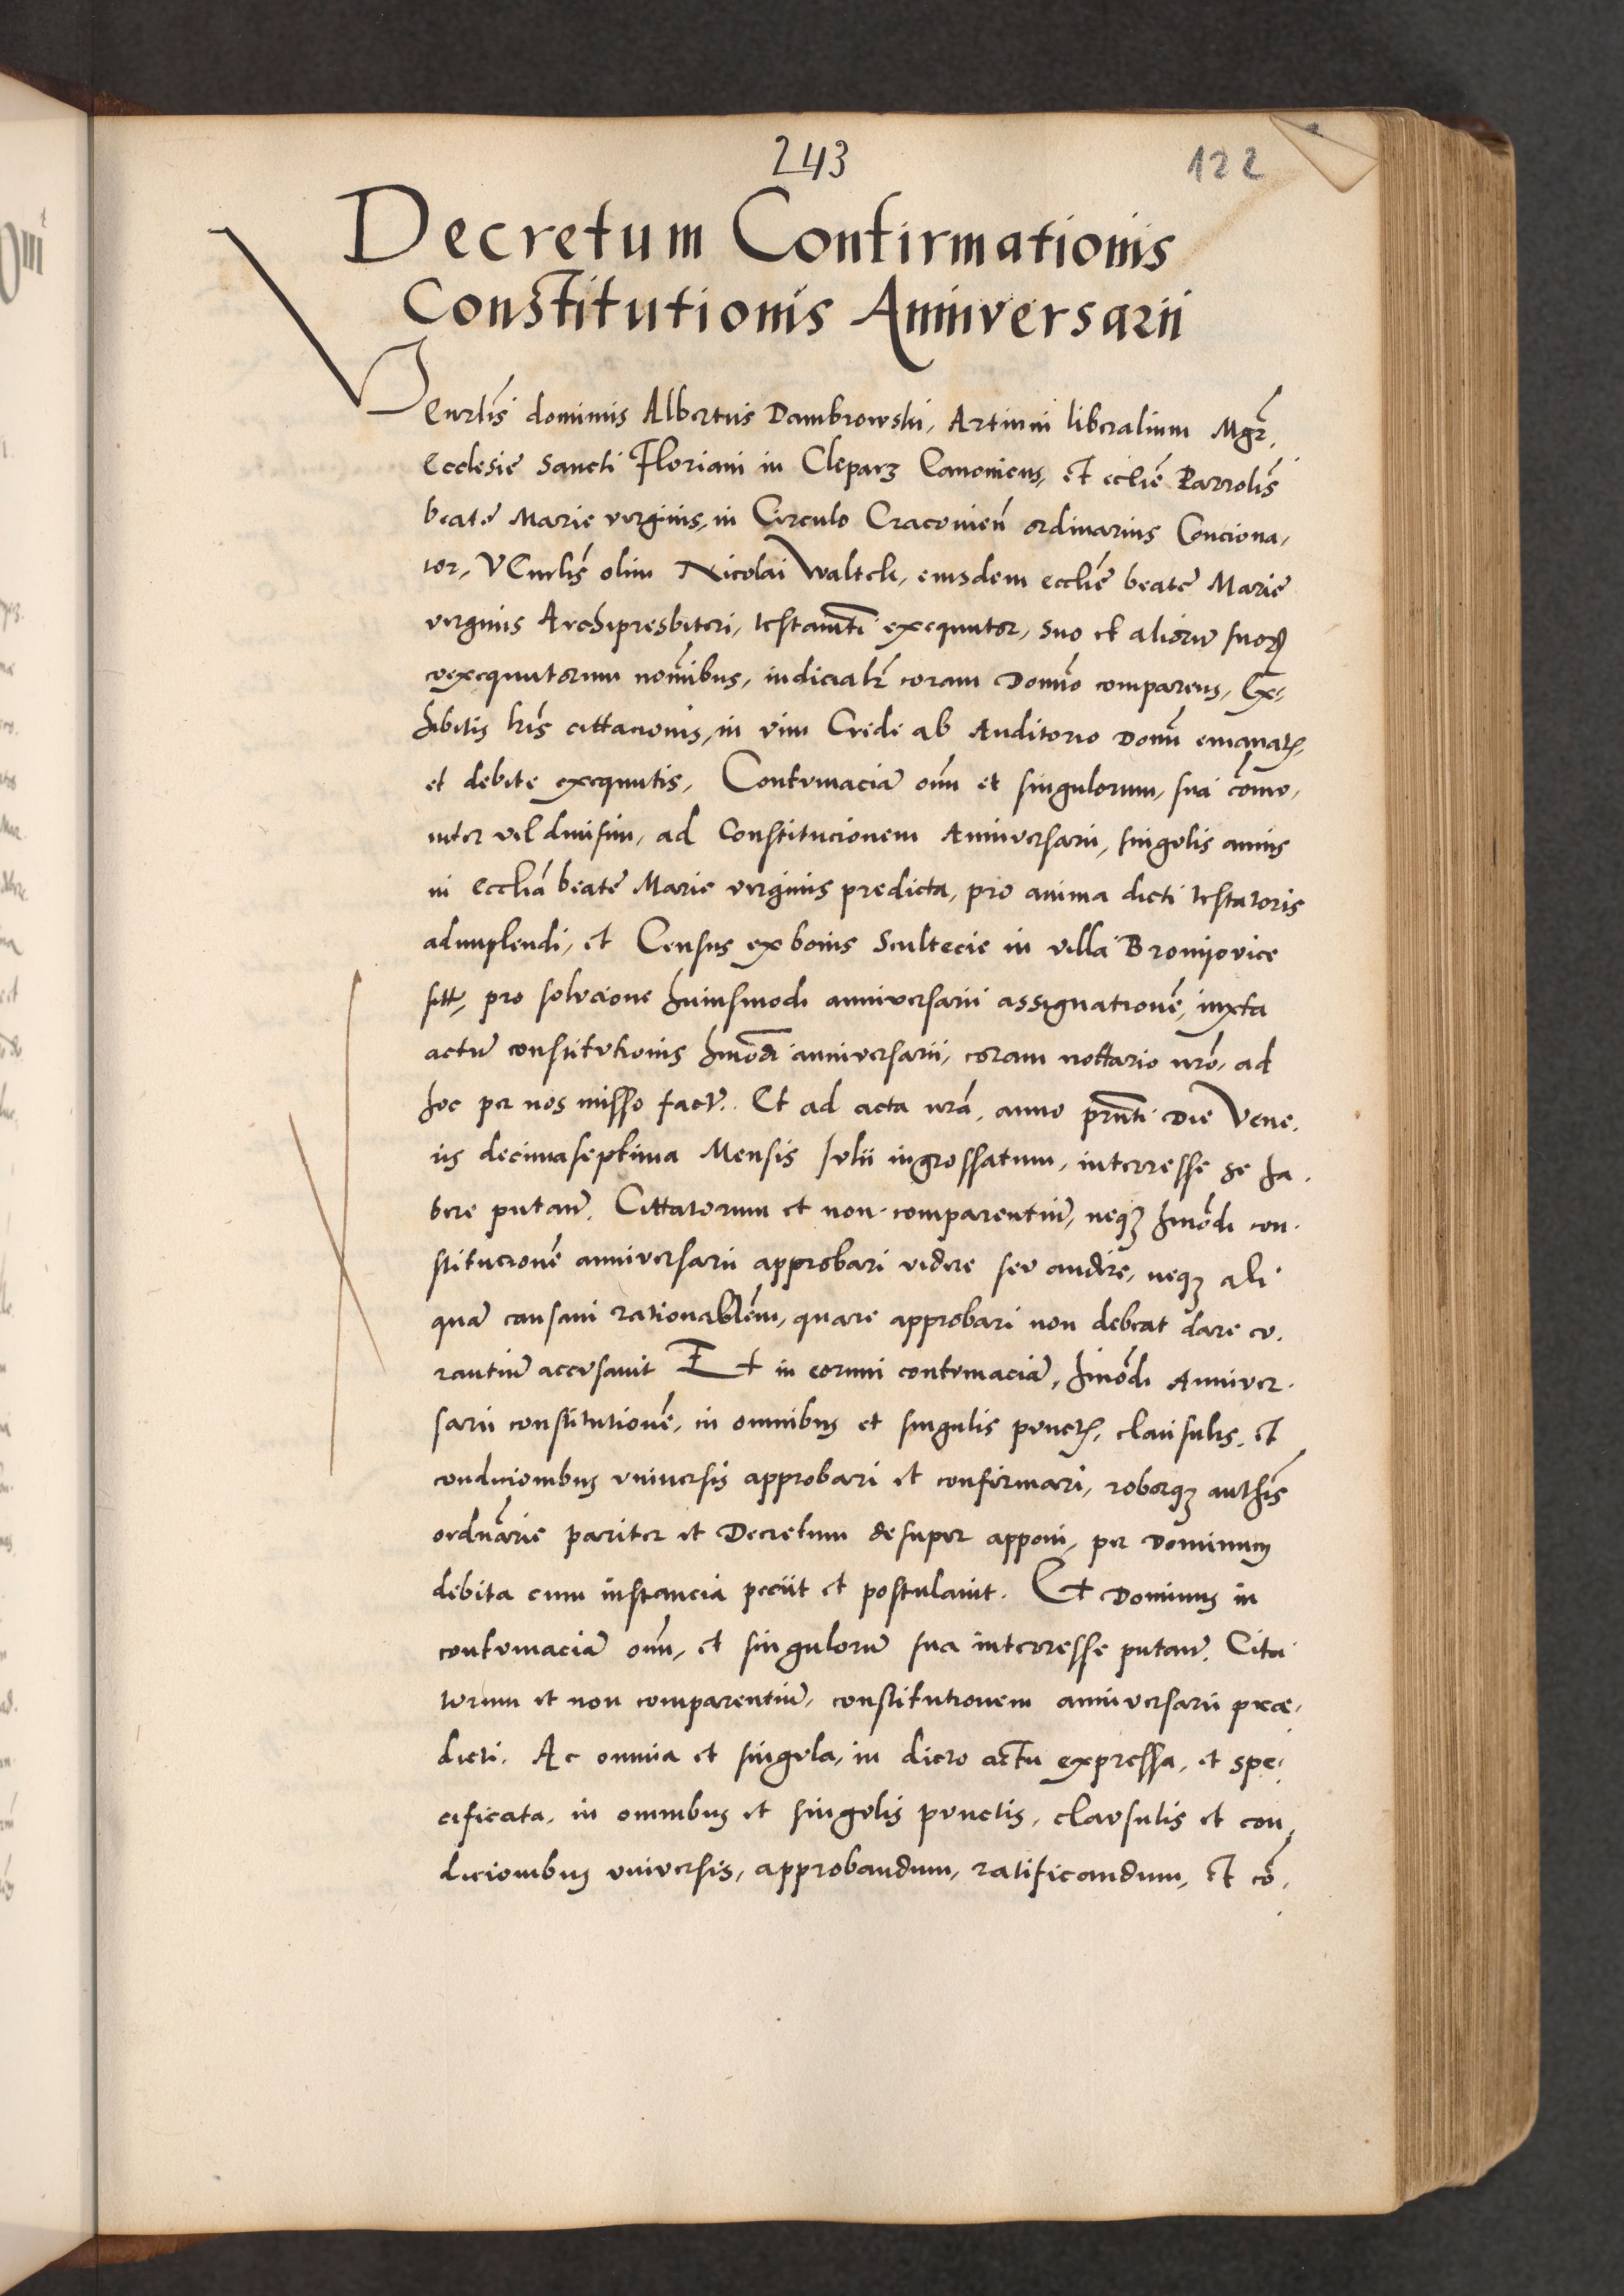 243
122
Decretum Confirmationis
Constitutionis Anniversarii
Venerlis dominus Albertus Dambrowski, Artium liberalium Mgr̄,
Ecclesie Sancti Floriani in Cleparz Canonicus, et ecclie Parrolis
beate Marie virginis, in Circulo Cracovien̄ ordinarius Conciona,
tor, Venerlis olim Nicolai Waltek, eiusdem ecclie beate Marie
virginis Archipresbiteri, testamti exequutor, suo et alioru suorꝝ
coexequutorum nomibus, iudicialr̄ coram Domno comparens, Ex-
hibitis lris cittationis, in vim Credi ab Auditorio Domni emanatꝭ
et debite exequutis, Contumacia oim et singulorum, sua comu,
niter vel divisim, ad Constitucionem Anniversarii, singulis annis
in ecclia beate Marie virginis predicta, pro anima dicti testatoris
adimplendi, et Census ex bonis Scultecie in villa Bronijovice
sitt̄, pro solucione huiusmodi anniversarii assignationē, iuxta
actū constitutionis hmodi anniversarii, coram nottario nro, ad
hoc per nos misso factū. Et ad acta nra, anno prnti die Vene,
ris decimaseptima Mensis Julii ingrossatum, interresse se ha,
bere putan̄. Cittatorum et non comparentiū, neqꝫ hmodi con,
stitucionē anniversarii approbari videre seu audire, neqꝫ ali
quā causam rationablem, quare approbari non debeat dare cu,
rantiū accusavit Et in eorum contumaciā, hmodi Anniver,
sarii constitutionē, in omnibus et singulis punctꝭ, clausulis, et
condicionibus universis approbari et confirmari, roburqꝫ authis
ordinarie pariter et Decretum desuper apponi, per Dominum
debita cum instancia peciit et postulavit. Et Dominus in
contumaciā oim, et singulorū sua interresse putan̄. Cita
torum et non comparentiū, constitutionem anniversarii præ,
dicti. Ac omnia et singula, in dicto actu expressa, et spe,
cificata, in omnibus et singulis punctis, clausulis et con,
dicionibus universis, approbandum, ratificandum, et cō,